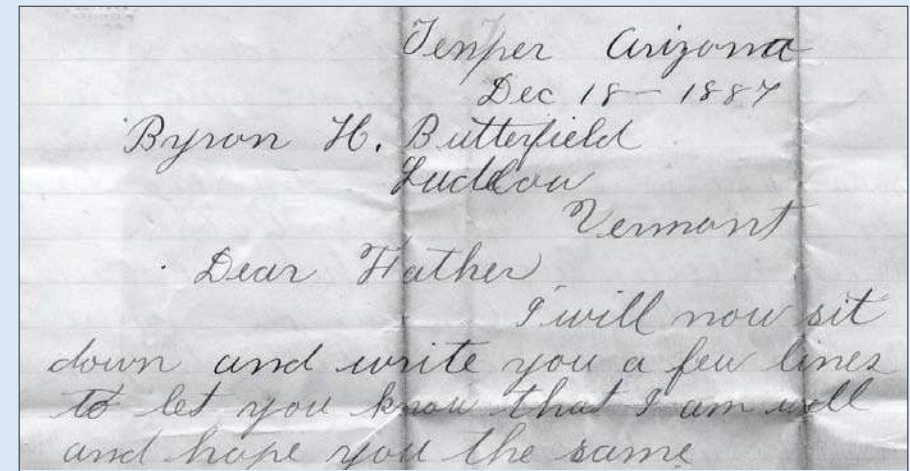 Temper Arizona
Dec 18 - 1887
Byron H. Butterfield
Ludlow
Vermont
Dear Father
I will now sit
down and write you a few lines
to let you know that I am well
and hope you the same